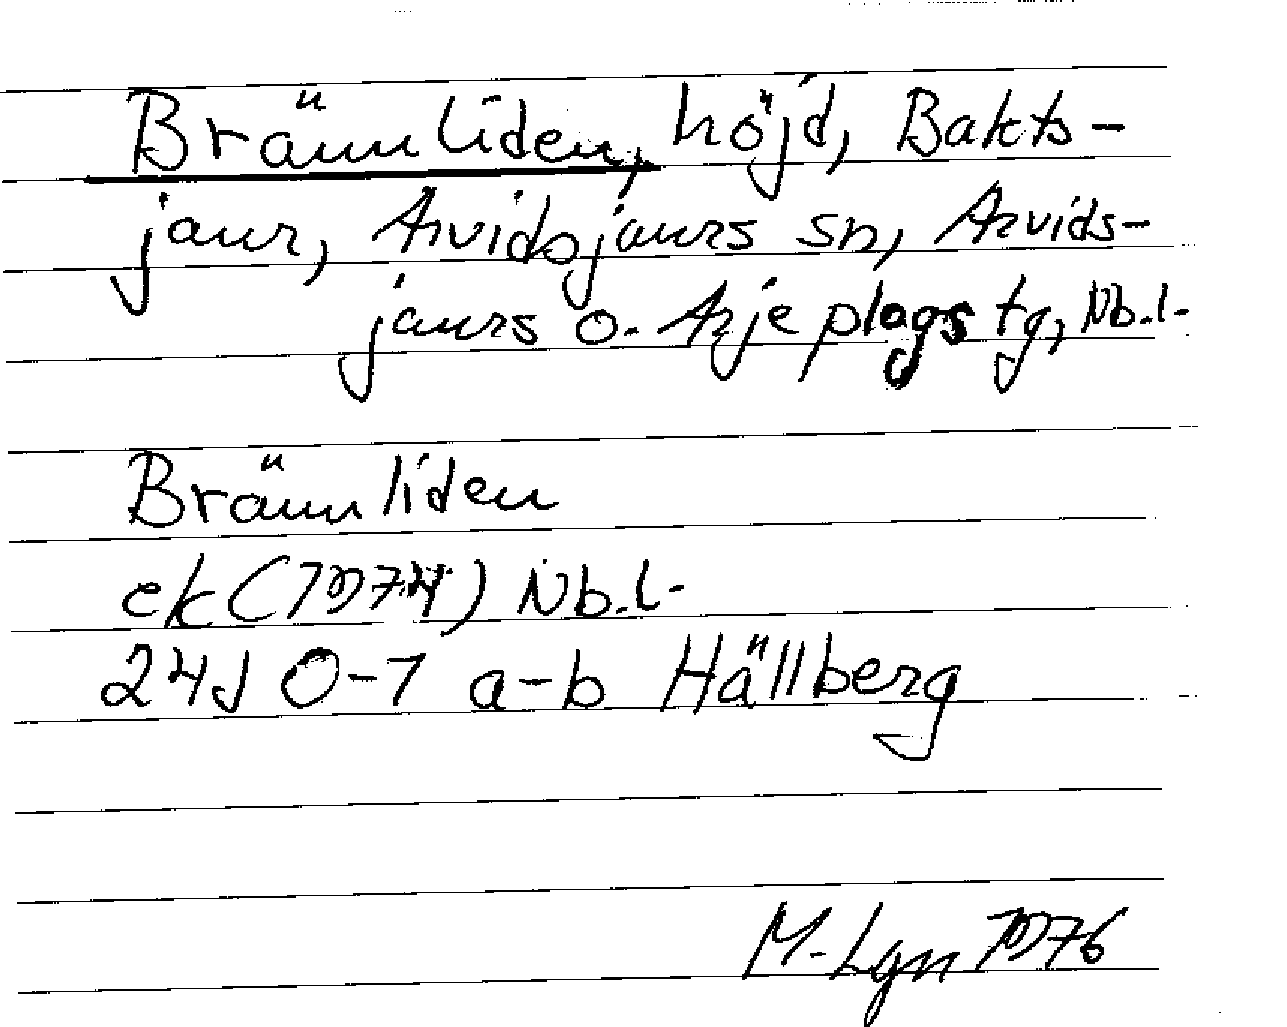 Brännliden, höjd, Bakts-
jaur, Arvidsjaurs sn, Arvids-
jaurs o. Arjeplogs tg, Nb.l.
Brännliden
ek (1974) Nb.l.
24J 0-1 a-b Hällberg
M. Lgn 1976